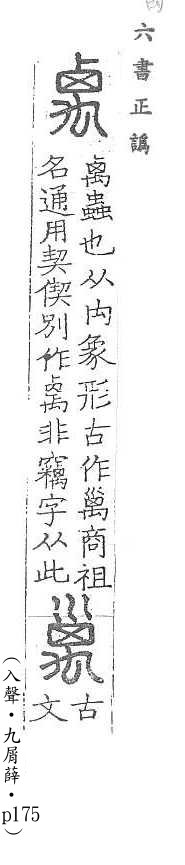 六書正譌
禼蟲也从禸象形古作𥜽商祖
名通用契偰別作卨非竊字从此
古文
（入聲．九屑薛．p175）